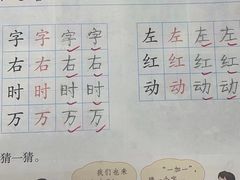 字 字 字 字
右 右 右 右
时 时 时 时
万 万 万 万
左 左 左 左
红 红 红 红
动 动 动 动
猜一猜。
我们也来
“一加一”